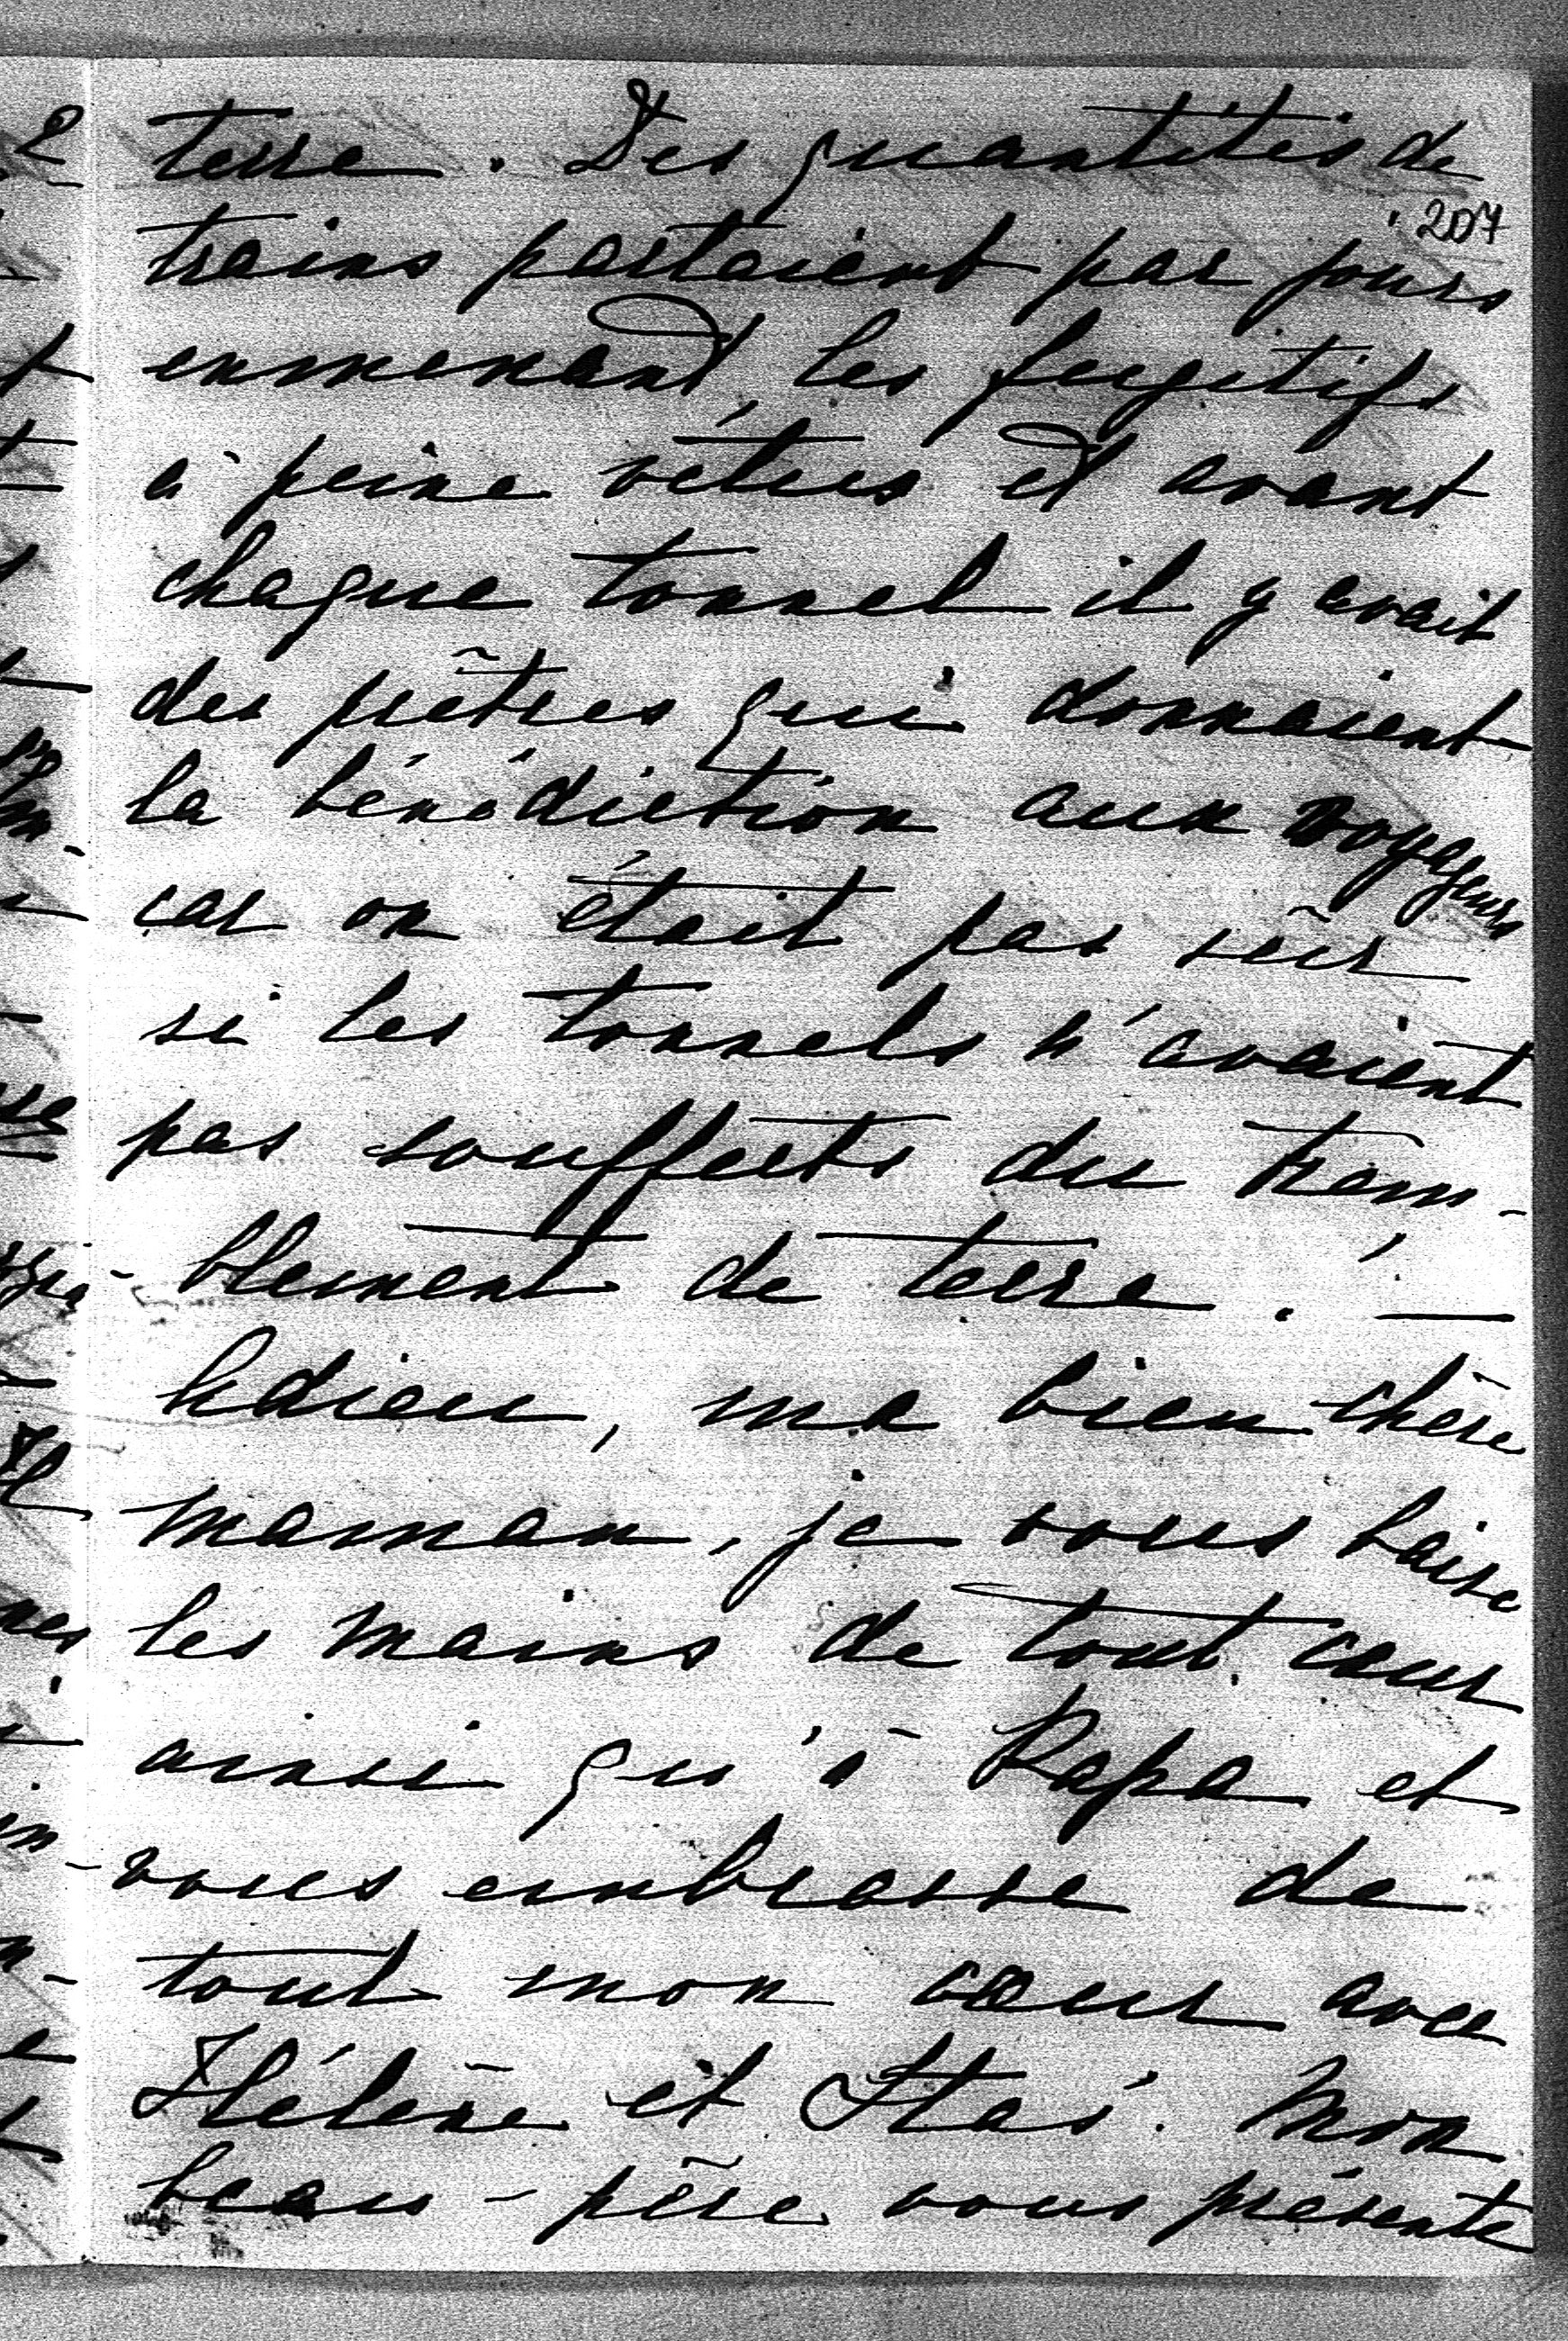 terre. Des quantités de
207
trains partaient par jours
enmenant les fugitifs
à peine vêtues et avant
chaque tonnel il y avait
des prêtres qui donnaient
la bénédiction aux voyageurs
car on était pas sûr
si les tonnels n'avaient
pas soufferts du trem-
blement de terre. —
Adieu, ma bien chère
maman, je vous baise
les mains de tout cœur
ainsi qu'à Papa et
vous embrasse de
tout mon cœur avec
Hélène et Stas. Mon
beau-père vous présente